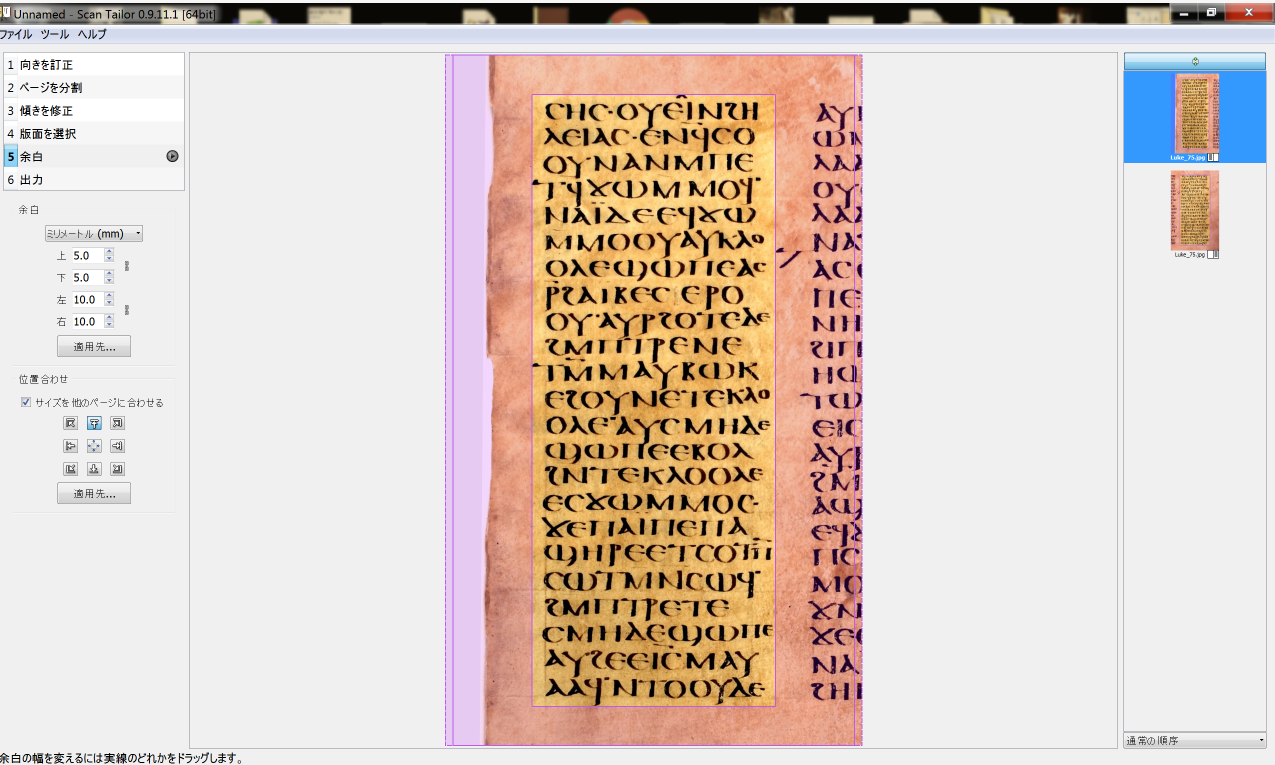 Unnamed - Scan Tailor 0.9.11.1 [64bit]
ファイル ツール ヘルプ
1 向きを訂正
2 ページを分割
3 傾きを修正
4 版面を選択
5 余白
6 出力
余白
ミリメートル (mm)
上 5.0
下 5.0
左 10.0
右 10.0
適用先...
位置合わせ
サイズを他のページに合わせる
適用先...
ⲥⲏⲥ·ⲟⲩⲉⲓ̂ⲛϩⲏ
ⲗⲉⲓⲁⲥ·ⲉⲛϥⲥⲟ
ⲟⲩⲛⲁⲛⲙⲡⲉ
ⲧϥϫⲱⲙⲙⲟϥ·
ⲛⲁⲓ̈ⲇⲉⲉϥϫⲱ
ⲙⲙⲟⲟⲩⲁⲩⲕⲗⲟ
ⲟⲗⲉϣⲱⲡⲉⲁⲥ
ⲣϩⲁⲓⲃⲉⲥⲉⲣⲟ
ⲟⲩ·ⲁⲩⲣϩⲟⲧⲉⲇⲉ
ϩⲙⲡⲧⲣⲉⲛⲉ
ⲧⲙⲙⲁⲩⲃⲱⲕ
ⲉϩⲟⲩⲛⲉⲧⲉⲕⲗⲟ
ⲟⲗⲉ·ⲁⲩⲥⲙⲏⲇⲉ
ϣⲱⲡⲉⲉⲃⲟⲗ
ϩⲛⲧⲉⲕⲗⲟⲟⲗⲉ
ⲉⲥϫⲱⲙⲙⲟⲥ·
ϫⲉⲡⲁⲓⲡⲉⲡⲁ
ϣⲏⲣⲉⲉⲧⲥⲟⲧⲡ̅
ⲥⲱⲧⲙⲛⲥⲱϥ·
ϩⲙⲡⲧⲣⲉⲧⲉ
ⲥⲙⲏⲇⲉϣⲱⲡⲉ
ⲁⲩϩⲉⲉⲓⲥⲙⲁⲩ
ⲁⲁϥ·ⲛⲧⲟⲟⲩⲇⲉ
Luke_75.jpg
Luke_75.jpg
通常の順序
余白の幅を変えるには実線のどれかをドラッグします。